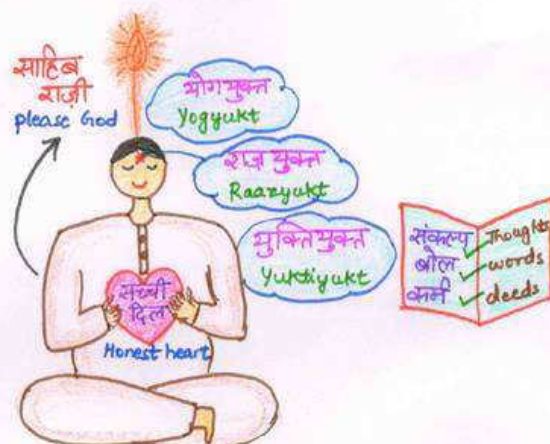 साहिब
राज़ी
please God
योगयुक्त
Yogyukt
राज़युक्त
Raazyukt
युक्तियुक्त
Yuktiyukt
सच्ची
दिल
Honest heart
संकल्प Thoughts
बोल words
कर्म deeds